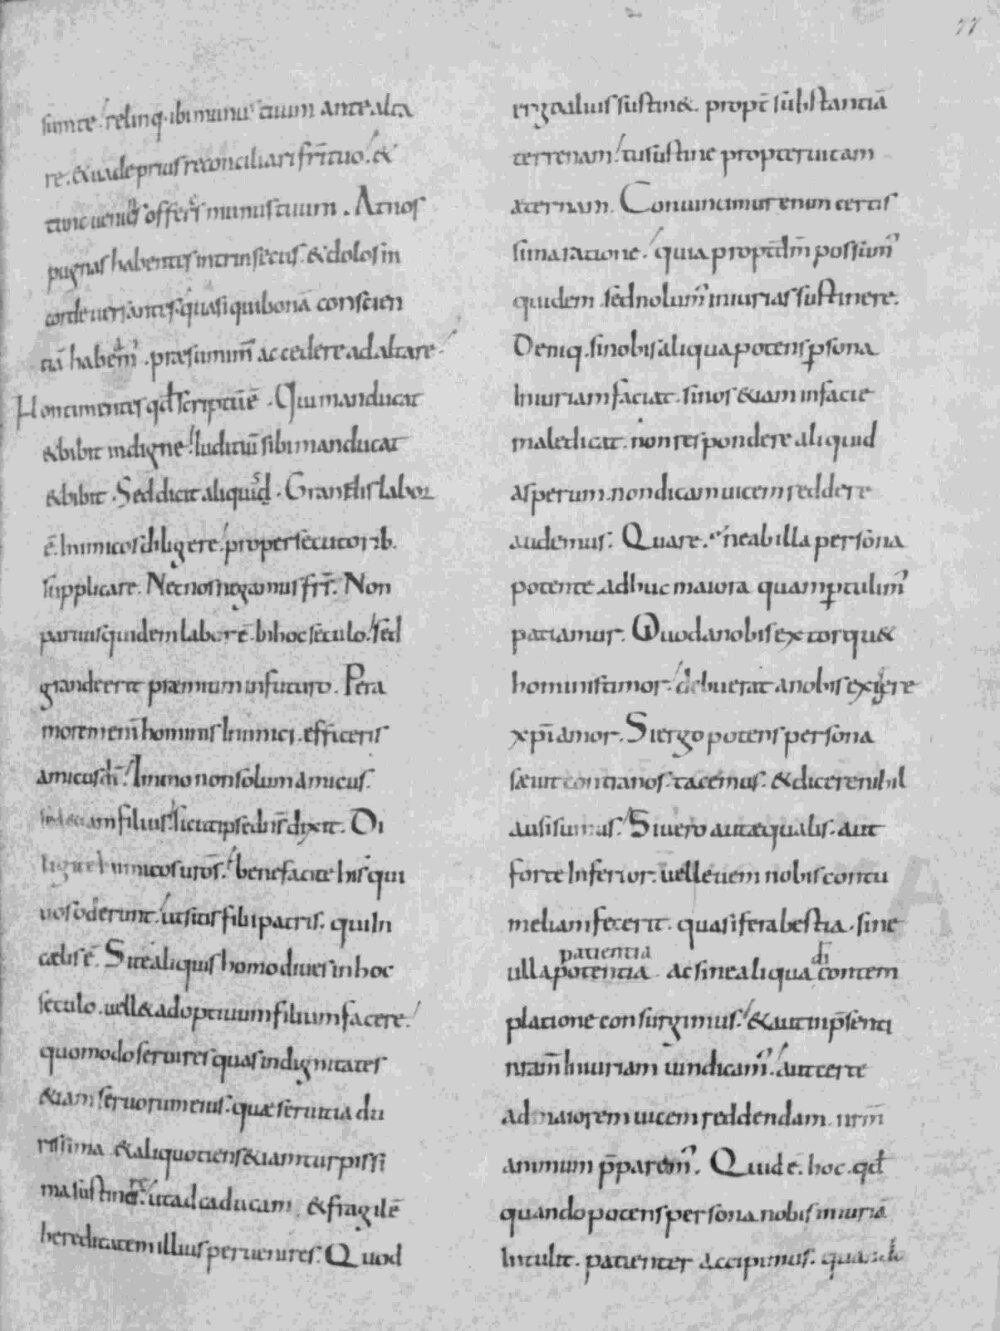 77
sum te. relinq. ibi munus tuum ante alta
re. & uade prius reconciliari fr̄i tuo. &
tunc uenies offers munus tuum. At nos
pugnas habentes intrinsecus. & dolos in
corde uersantes. quasi qui bonā conscien
tiā habem̄. præsumim̄ accedere ad altare
Non timentes qd̄ scriptū ē. Qui manducat
& bibit indigne. Iuditiū sibi manducat
& bibit. Sed dicit aliquis. Grandis labor
ē. Inimicos diligere. pro persecutorib.
supplicare. Nec nos negamus fr̄s. Non
paruus quidem labor ē. In hoc seculo. sed
grande erit præmium in futuro. Per a
morem eni hominis Inimici. efficeris
amicus dī. Immo non solum amicus.
sed etiam filius. sicut ipse dn̄s dixit. Di
ligite Inimicos uros̄. benefacite his qui
uos oderunt. ut sitis filii patris. qui In
cælis ē. Si te aliquis homo diues in hoc
seculo. uell& adoptiuum filium facere.
quomodo seruires quas indignitates
&iam seruorum eius. quæ seruitia du
rissima. & aliquotiens &iam turpissi
ma sustineres. ut ad caducam. & fragilē
hereditatem illius peruenires. Quod
ergo alius sustin&. propt̄ substantiā
terrenam. tu sustine propter uitam
æternam. Conuincimur enim certis
sima ratione. quia propt̄ dm̄ possum̄
quidem. sed nolum̄ iniurias sustinere.
Deniq. si nobis aliqua potens psona
Iniuriam faciat. si nos &iam in facie
maledicat. non respondere aliquid
asperum. non dicam uicem reddere
audemus. Quare. ne ab illa persona
potente adhuc maiora quam ptulim̄
patiamur. Quod a nobis extorqu&
hominis timor. debuerat a nobis exigere
xp̄i amor. Si ergo potens persona
sæuit contra nos. tacemus. & dicere nihil
ausi sumus. Si uero aut æqualis. aut
forte Inferior. uel leuem nobis contu
meliam fecerit. quasi fera bestia. sine
patientia dī
ulla potentia. ac sine aliqua contem
platione consurgimus. & aut in p̄senti
nram̄ Iniuriam uindicam̄. aut certe
ad maiorem uicem reddendam. nrm̄
animum p̄param̄. Quid ē. hoc. qd̄
quando potens persona nobis iniuriā
Intulit. patienter accipimus. quando